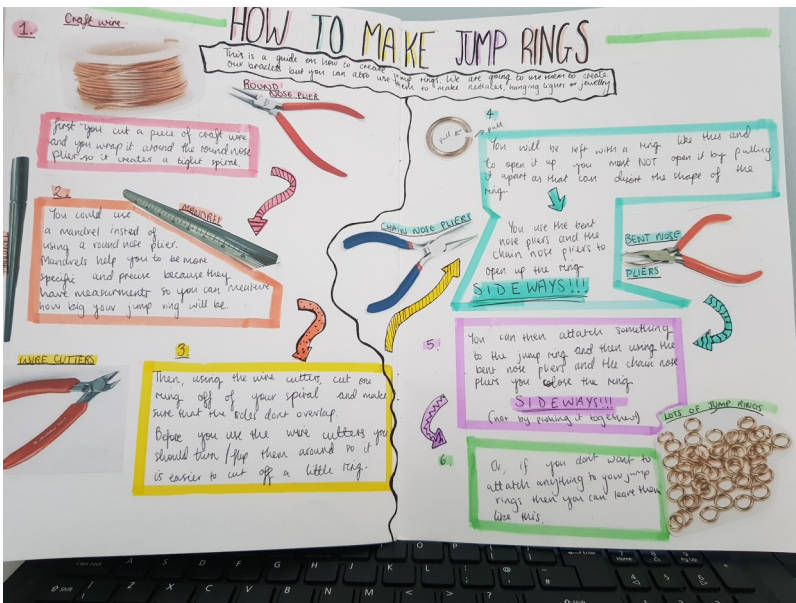 HOW TO MAKE JUMP RINGS
This is a guide on how to create jump rings. We are going to use them to create
our bracelet but you can also use them to make necklaces, hanging or jewellery
1.
Craft wire
ROUND
NOSE PLIER
First you cut a piece of craft wire
and you wrap it around the round nose
plier so it creates a tight spiral.
2.
MANDREL
You could use
a mandrel insted of
using a round nose plier.
Mandrels help you to be more
specific and precise because they
have measurments so you can measure
how big your jump ring will be.
3.
WIRE CUTTERS
Then, using the wire cutters, cut one
ring off of your spiral and make
sure that the sides dont overlap.
Before you use the wire cutters you
should turn/flip them around so it
is easier to cut off a little ring.
4.
pull
pull
You will be left with a ring like this and
to open it up you must NOT open it by pulling
it apart as that can distort the shape of the
ring.
CHAIN NOSE PLIERS
You use the bent
nose pliers and the
chain nose pliers to
open up the ring
SIDEWAYS!!!
BENT NOSE
PLIERS
5.
You can then attatch something
to the jump ring and then using the
bent nose pliers and the chain nose
pliers you close the ring
SIDEWAYS!!!
(not by pushing it together)
LOTS OF JUMP RINGS
6.
Or, if you don't want to
attatch anything to your jump
rings then you can leave them
like this.